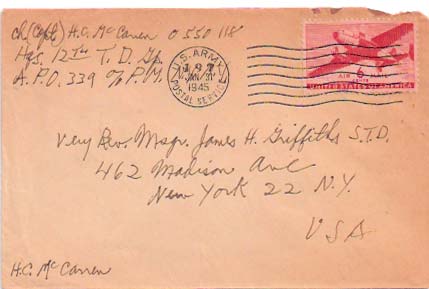 Ch (Capt) H.C. McCarren O 550 118
Hqs. 12th T.D. Gp.
A.P.O. 339 c/o P.M.
U.S. ARMY
JAN 31
1945
POSTAL SERVICE
AIR MAIL
6
CENTS
UNITED STATES OF AMERICA
Very Rev. Msgr. James H. Griffiths S.T.D.
462 Madison Ave
New York 22 N.Y.
USA
H.C. McCarren